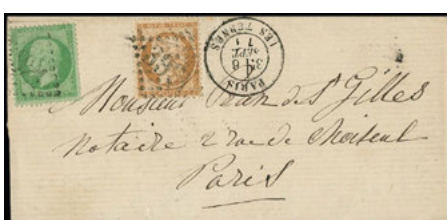 PARIS
LES TERNES
6
SEPT
71
Monsieur
St Gilles
Notaire 2 rue de Choiseul
Paris